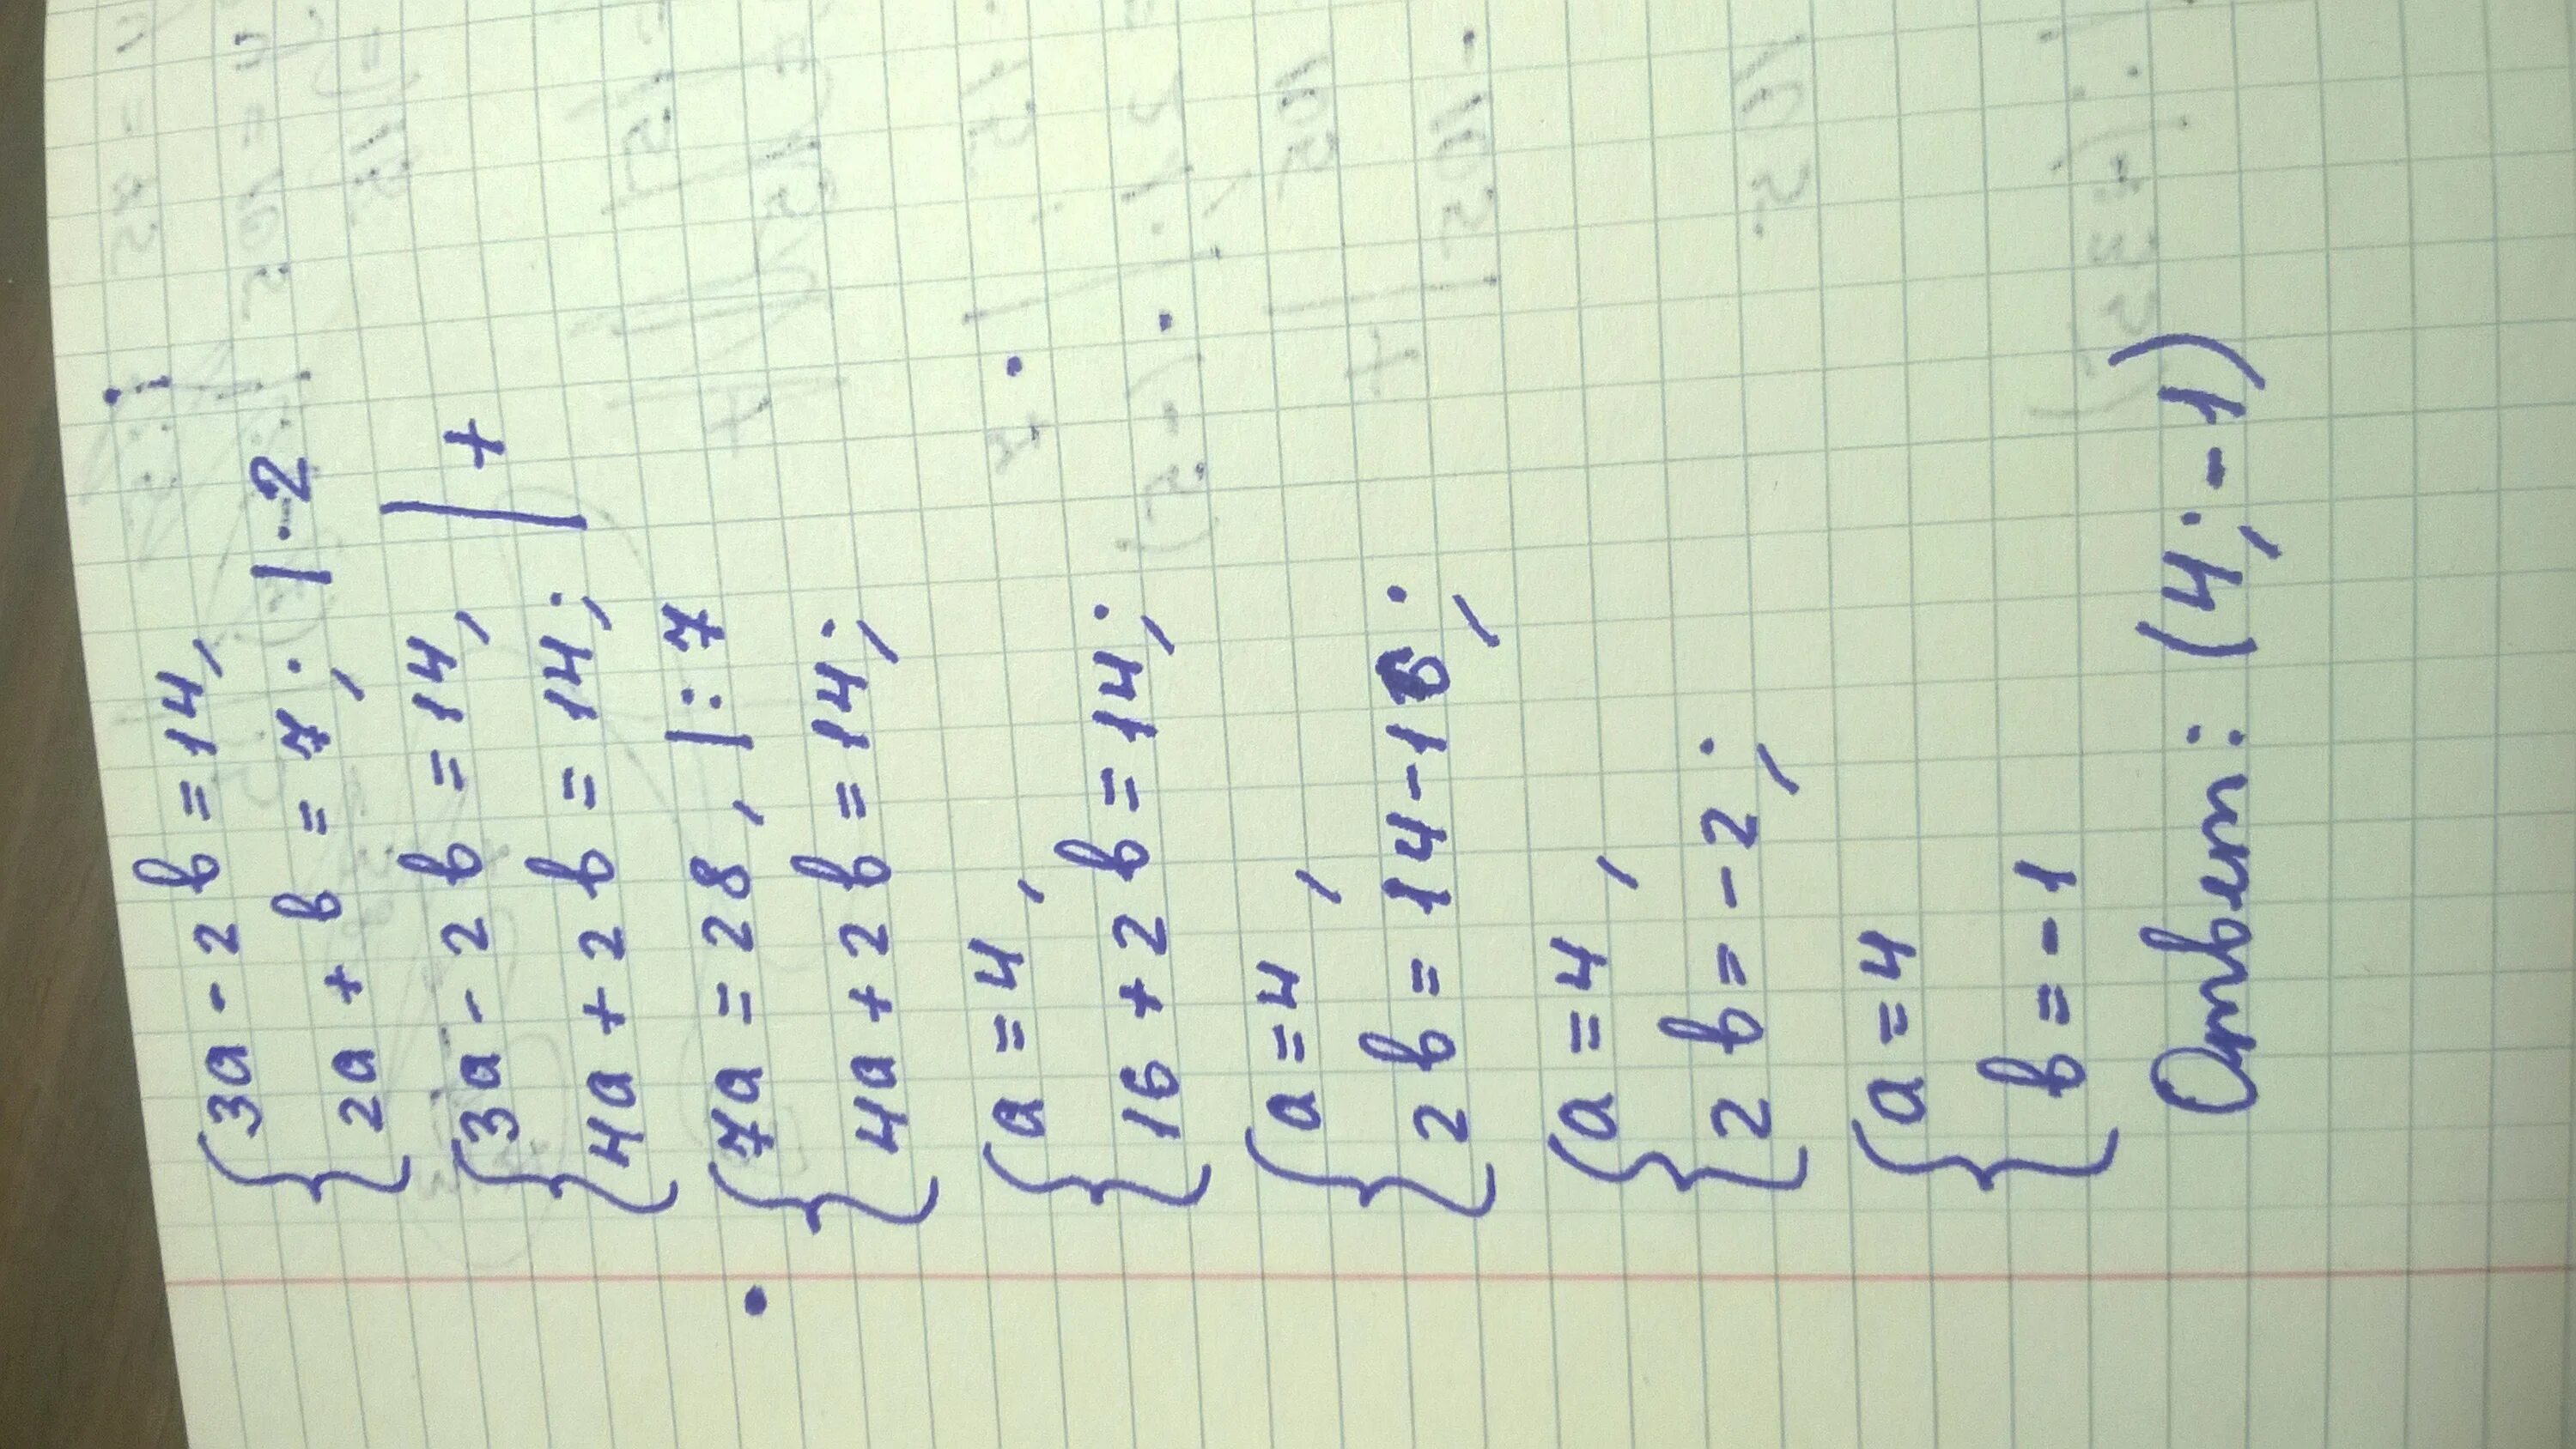 {3a - 2b = 14,
2a + b = 7; | · 2
{3a - 2b = 14,
4a + 2b = 14; | +
{7a = 28, | : 7
4a + 2b = 14;
{a = 4,
16 + 2b = 14;
{a = 4,
2b = 14 - 16;
{a = 4,
2b = -2;
{a = 4
b = -1
Ответ: (4; -1)